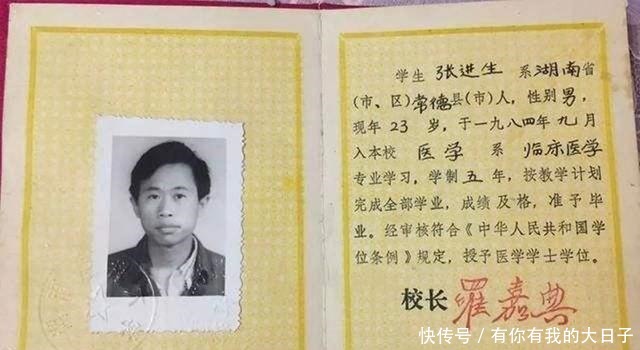 学生 张进生 系湖南省
(市、区)常德县(市)人，性别男，
现年23岁，于一九八四年九月
入本校 医学 系 临床医学
专业学习，学制五年，按教学计划
完成全部学业，成绩及格，准予毕
业。经审核符合《中华人民共和国学
位条例》规定，授予医学学士学位。
校长 罗嘉典
快传号/有你有我的大日子